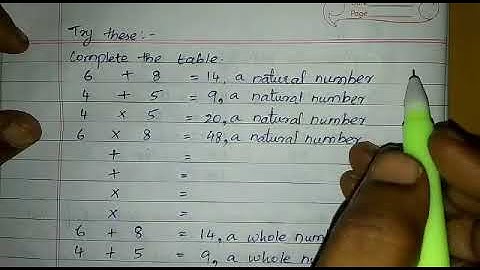 Page
Try these:-
Complete the table.
6 + 8 = 14, a natural number
4 + 5 = 9, a natural number
4 x 5 = 20, a natural number
6 x 8 = 48, a natural number
+ =
+ =
x =
x =
6 + 8 = 14, a whole num
4 + 5 = 9, a whole